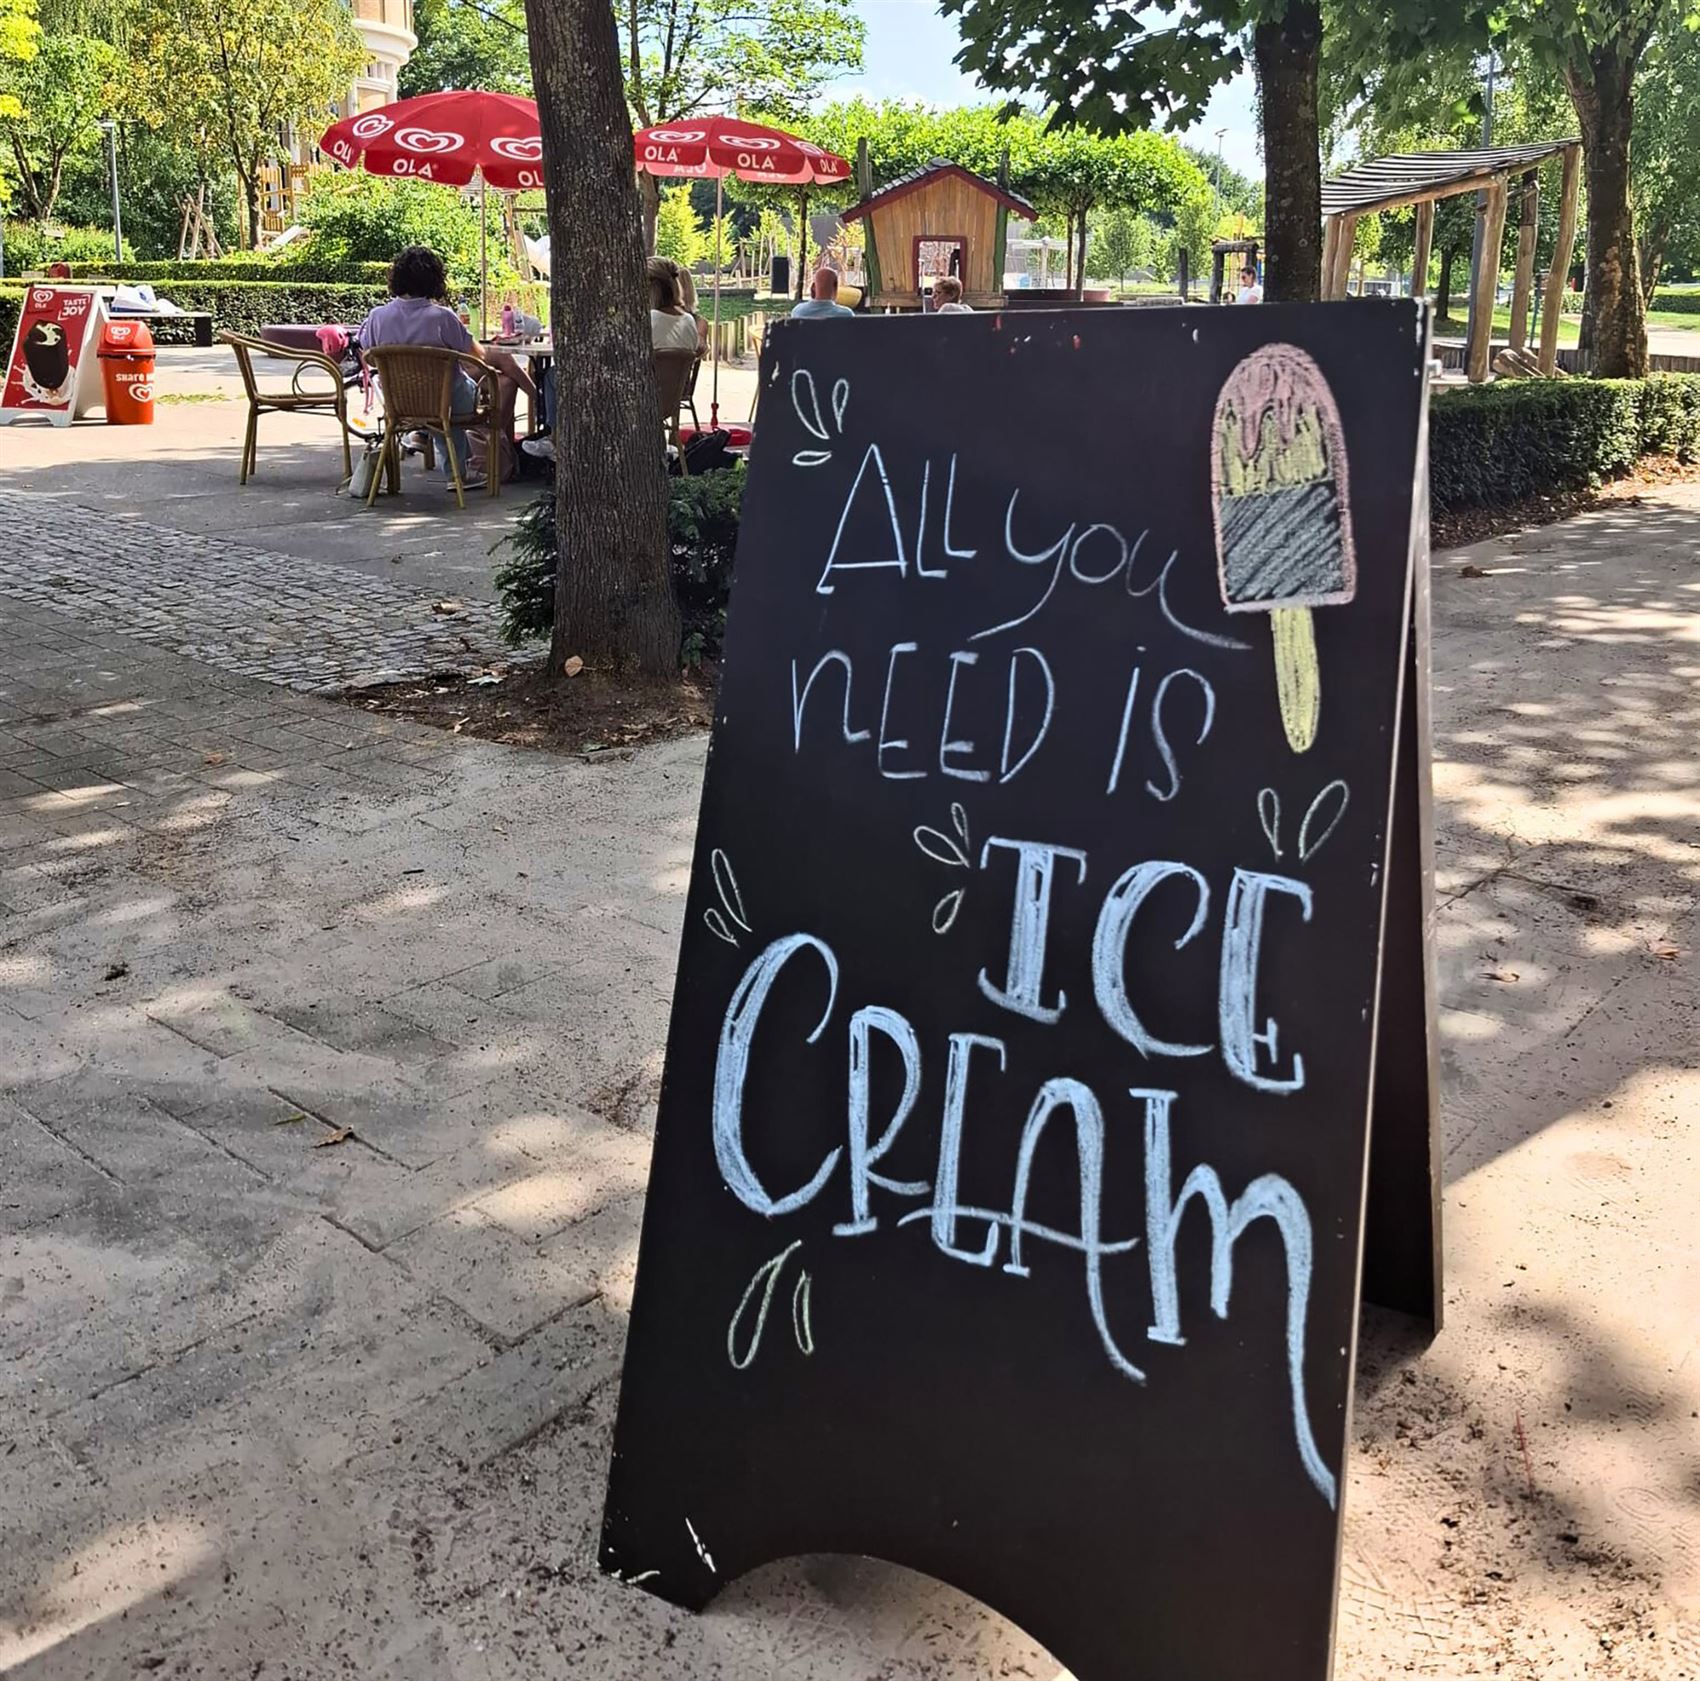 OLA
OLA
OLA
OLA
OLA
OLA
TASTE
JOY
OLA
SHARE
ALL you
nEED iS
ICE
CREAm